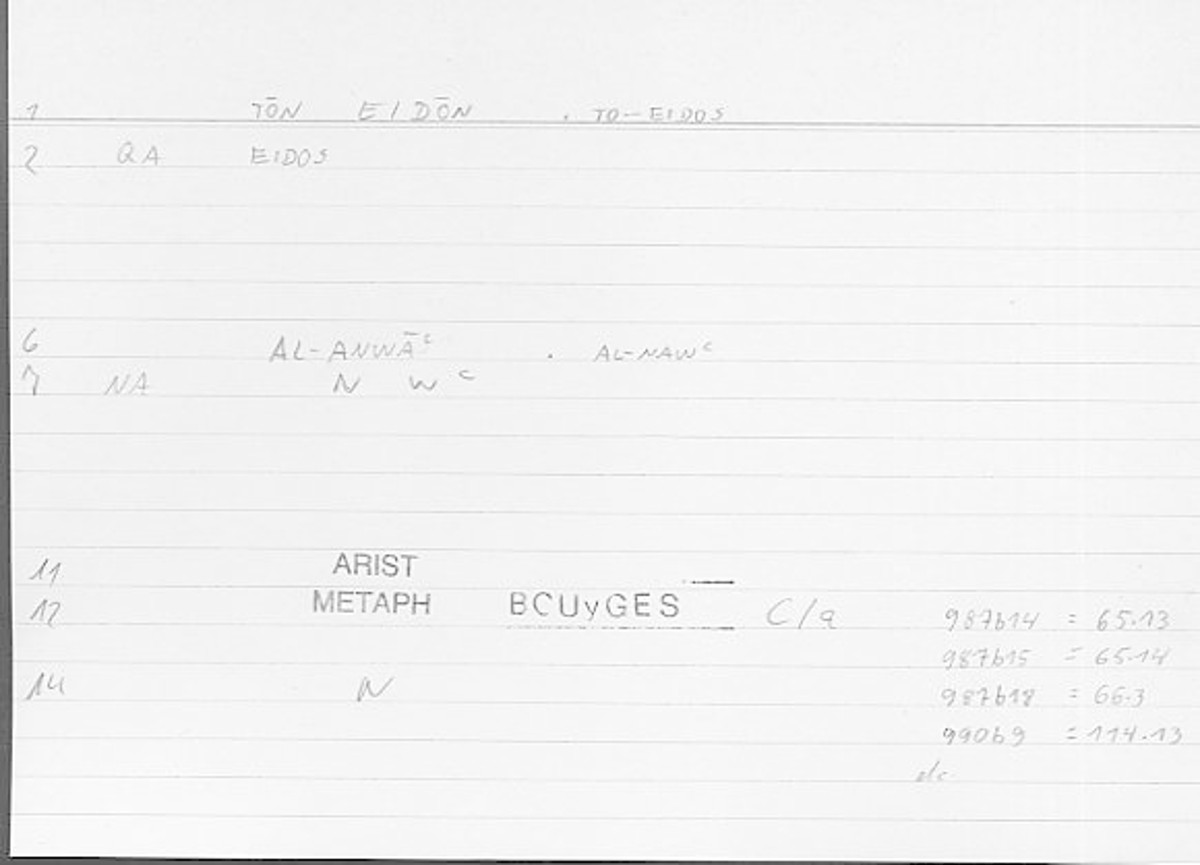 1 TŌN EIDŌN . TO-EIDOS
2 QA EIDOS
6 AL-ANWĀᶜ . AL-NAWᶜ
7 NA N W ᶜ
11 ARIST
12 METAPH BOUyGES C/a 987b14 = 65.13
987b15 = 65.14
14 N 987b18 = 66.3
990b9 = 114.13
etc